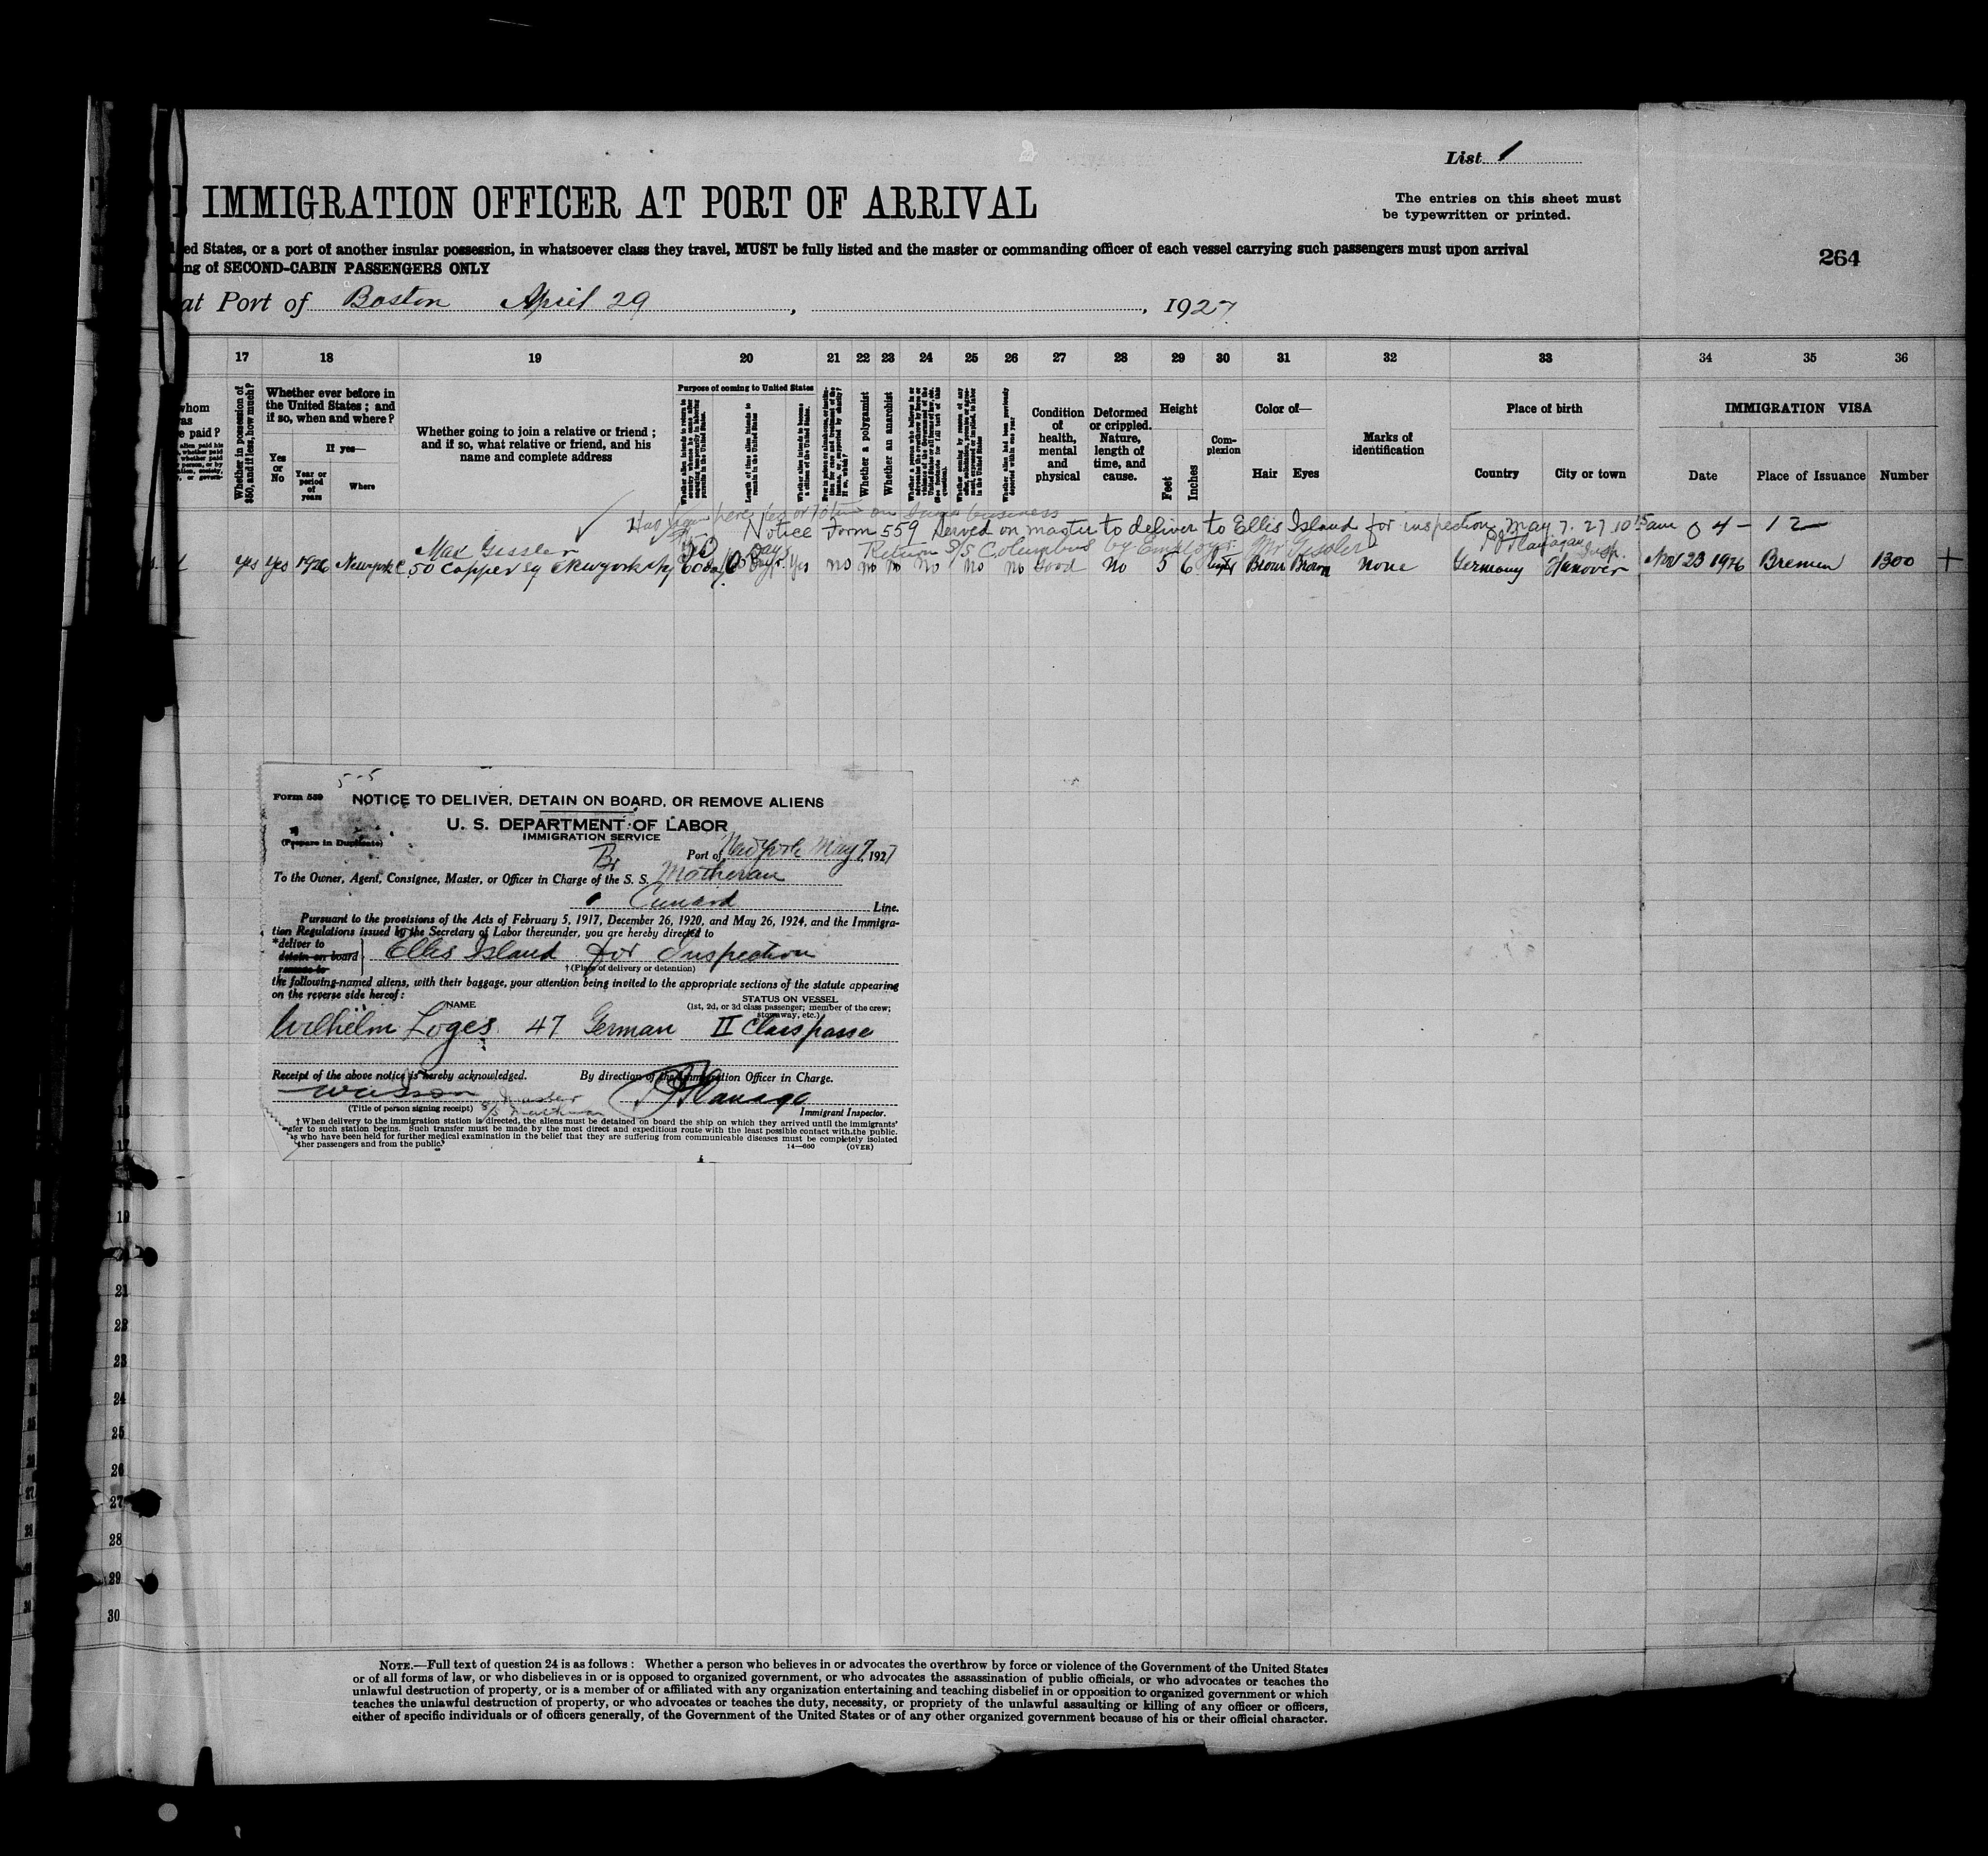 List 1
IMMIGRATION OFFICER AT PORT OF ARRIVAL
The entries on this sheet must
be typewritten or printed.
ed States, or a port of another insular possession, in whatsoever class they travel, MUST be fully listed and the master or commanding officer of each vessel carrying such passengers must upon arrival
ing of SECOND-CABIN PASSENGERS ONLY
264
at Port of Boston April 29, , 1927
17 18 19 20 21 22 23 24 25 26 27 28 29 30 31 32 33 34 35 36
whom
was
e paid?
Whether in possession of $50, and if less, how much?
Whether ever before in
the United States; and
if so, when and where?
Yes
or
No
If yes—
Year or
period
of
years
Where
Whether going to join a relative or friend;
and if so, what relative or friend, and his
name and complete address
Purpose of coming to United States
Length of time alien intends to remain in the United States
Whether alien intends to become a citizen of the United States.
Whether a polygamist
Whether an anarchist
Whether alien had been previously deported within one year
Condition
of
health,
mental
and
physical
Deformed
or crippled.
Nature,
length of
time, and
cause.
Height
Feet
Inches
Com-
plexion
Color of—
Hair Eyes
Marks of
identification
Place of birth
Country City or town
IMMIGRATION VISA
Date Place of Issuance Number
Notice Form 559 served on master to deliver to Ellis Island for inspection May 7. 27 10 15 am 04-12
PJ Flanagan Insp.
Max Gissler
Return S/S Columbus by Employer Mr Gissler
yes yes 1926 Newyork 50 Copper sq Newyork city 60 day yes no no no no no no Good no 5 6 Brown Brown none Germany Hanover Nov 23 1926 Bremen 1300 +
5-5
Form 559 NOTICE TO DELIVER, DETAIN ON BOARD, OR REMOVE ALIENS
U. S. DEPARTMENT OF LABOR
IMMIGRATION SERVICE
(Prepare in Duplicate)
Port of New York May 7, 1927
Br
To the Owner, Agent, Consignee, Master, or Officer in Charge of the S. S. Matheran
Cunard Line.
Pursuant to the provisions of the Acts of February 5, 1917, December 26, 1920, and May 26, 1924, and the Immigra-
tion Regulations issued by the Secretary of Labor thereunder, you are hereby directed to
*deliver to
detain on board
remove to
Ellis Island for Inspection
†(Place of delivery or detention)
the following-named aliens, with their baggage, your attention being invited to the appropriate sections of the statute appearing
on the reverse side hereof:
NAME
STATUS ON VESSEL
(1st, 2d, or 3d class passenger; member of the crew;
stowaway, etc.)
Wilhelm Loges 47 German II Class passe
Receipt of the above notice is hereby acknowledged. By direction of the Immigration Officer in Charge.
Master
(Title of person signing receipt)
PJ Flanagan
Immigrant Inspector.
†When delivery to the immigration station is directed, the aliens must be detained on board the ship on which they arrived until the immigrants'
sfer to such station begins. Such transfer must be made by the most direct and expeditious route with the least possible contact with the public.
s who have been held for further medical examination in the belief that they are suffering from communicable diseases must be completely isolated
ther passengers and from the public.
14—660 (OVER)
19
21
22
23
24
25
26
27
28
29
30
NOTE.—Full text of question 24 is as follows: Whether a person who believes in or advocates the overthrow by force or violence of the Government of the United States
or of all forms of law, or who disbelieves in or is opposed to organized government, or who advocates the assassination of public officials, or who advocates or teaches the
unlawful destruction of property, or is a member of or affiliated with any organization entertaining and teaching disbelief in or opposition to organized government or which
teaches the unlawful destruction of property, or who advocates or teaches the duty, necessity, or propriety of the unlawful assaulting or killing of any officer or officers,
either of specific individuals or of officers generally, of the Government of the United States or of any other organized government because of his or their official character.